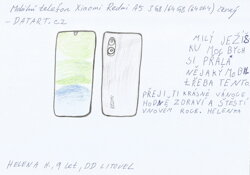 Mobilní telefon Xiaomi Redmi A5 3 GB/64 GB černý
- DATART.CZ
MILÝ JEŽÍŠ
KU MOC BYCH
SI PŘÁLA
NĚJAKÝ MOBIL
TŘEBA TENTO
PŘEJI TI KRÁSNÉ VÁNOCE
HODNĚ ZDRAVÍ A ŠTĚSTÍ
V NOVÉM ROCE. HELENKA
HELENA K., 9 let, DD LITOVEL